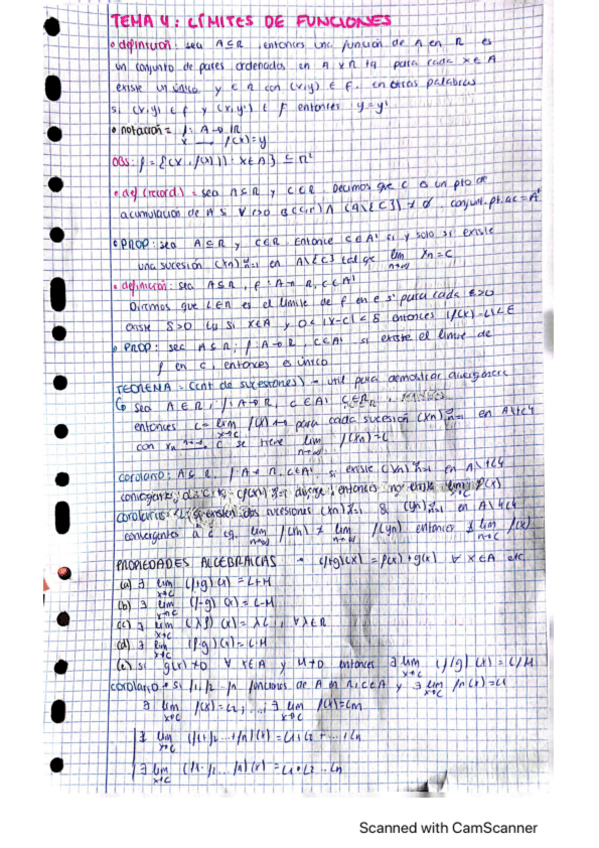 TEMA 4: LÍMITES DE FUNCIONES
• definición: sea A⊆R, entonces una función de A en R es
un conjunto de pares ordenados en A x R tq para cada x∈A
existe un único y ∈ R con (x,y) ∈ f. en otras palabras
si (x,y) ∈ f y (x,y') ∈ f entonces y=y'
• notación = f: A→R
x → f(x)=y
OBS: f = {(x, f(x)): x∈A} ⊆ R²
• def (record.) = sea A⊆R y C∈R. Decimos que c es un pto de
acumulación de A si ∀ r>0 B(c,r) ∩ (A\{c}) ≠ ø. conjunt. pt. ac = A'
• PROP: sea A⊆R y C∈R. Entonces C∈A' si y solo si existe
una sucesión (xn)∞n=1 en A\{c} tal que lim n→∞ xn = C
• definición: sea A⊆R, f: A→R, C∈A'
Diremos que L∈R es el límite de f en c si para cada ε>0
existe δ>0 tq si x∈A y 0<|x-c|<δ entonces |f(x)-L|<ε
• PROP: sea A⊆R, f: A→R, C∈A' si existe el límite de
f en c, entonces es único
TEOREMA = (cnt de sucesiones) → util para demostrar divergencia
sea A∈R, f: A→R, C∈A'
entonces L = lim x→c f(x) ↔ para cada sucesión (xn)∞n=1 en A\{c}
con xn → c se tiene lim n→∞ f(xn)=L
corolario: A⊆R, f: A→R, C∈A' si existe (xn)∞n=1 en A\{c}
convergente a c tq (f(xn))∞n=1 diverge, entonces no existe lim x→c f(x)
corolario: si existen dos sucesiones (xn)∞n=1 & (yn)∞n=1 en A\{c}
convergentes a c tq. lim n→∞ f(xn) ≠ lim n→∞ f(yn) entonces ∄ lim x→c f(x)
PROPIEDADES ALGEBRAICAS → (f+g)(x) = f(x)+g(x) ∀ x∈A etc
(a) ∃ lim x→c (f+g)(x) = L+M
(b) ∃ lim x→c (f-g)(x) = L-M
(c) ∃ lim x→c (λf)(x) = λL, ∀λ∈R
(d) ∃ lim x→c (f·g)(x) = L·M
(e) si g(x)≠0 ∀ x∈A y M≠0 entonces ∃ lim x→c (f/g)(x) = L/M
corolario • Si f1, f2 ... fn funciones de A en R, C∈A y ∃ lim x→c f1(x)=L1
∃ lim x→c f2(x)=L2, ...; ∃ lim x→c fn(x)=Ln
∃ lim x→c (f1+f2 ...+fn)(x) = L1+L2+...+Ln
∃ lim x→c (f1·f2...fn)(x) = L1·L2...Ln
Scanned with CamScanner